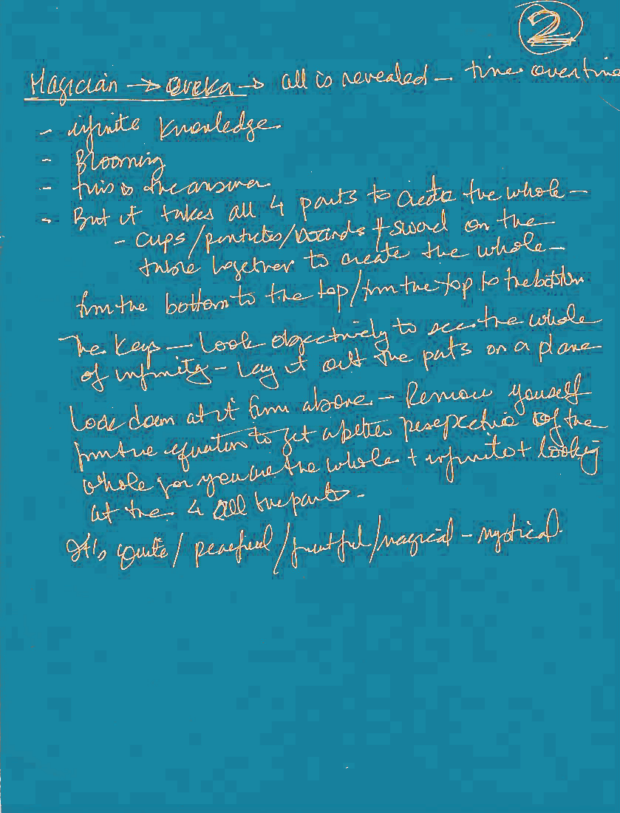 2
Magician → eureka → all is revealed — time over time
- infinite knowledge
- Blooming
- this is the answer
- But it takes all 4 parts to create the whole —
- cups/pentacles/wands + sword on the
table together to create the whole —
from the bottom to the top/from the top to the bottom
The Keys — Look objectively to see the whole
of infinity — Lay it out the parts on a plane
Look down at it from above — Remove yourself
from the equation to get a better perspective of the
whole for you are the whole + infinite + looking
at the 4 all the parts —
It's quite/peaceful/fruitful/magical — mystical.